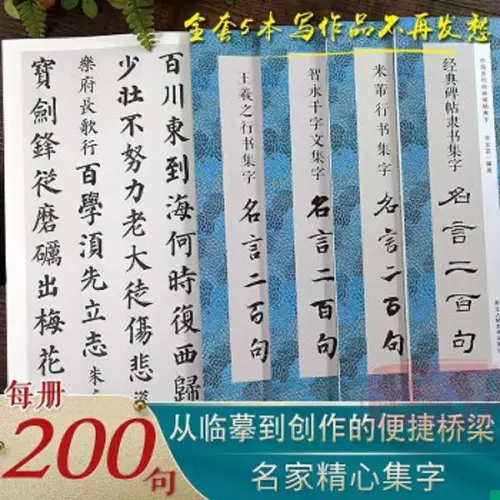 全套5本 写作品不再发愁
百川東到海何時復西歸
少壯不努力老大徒傷悲 漢
樂府長歌行 百學須先立志 朱
寶劍鋒從磨礪出梅花
王羲之行书集字
名言二百句
智永千字文集字
名言二百句
米芾行书集字
名言二百句
经典碑帖隶书集字
名言二百句
每册
200句
从临摹到创作的便捷桥梁
名家精心集字